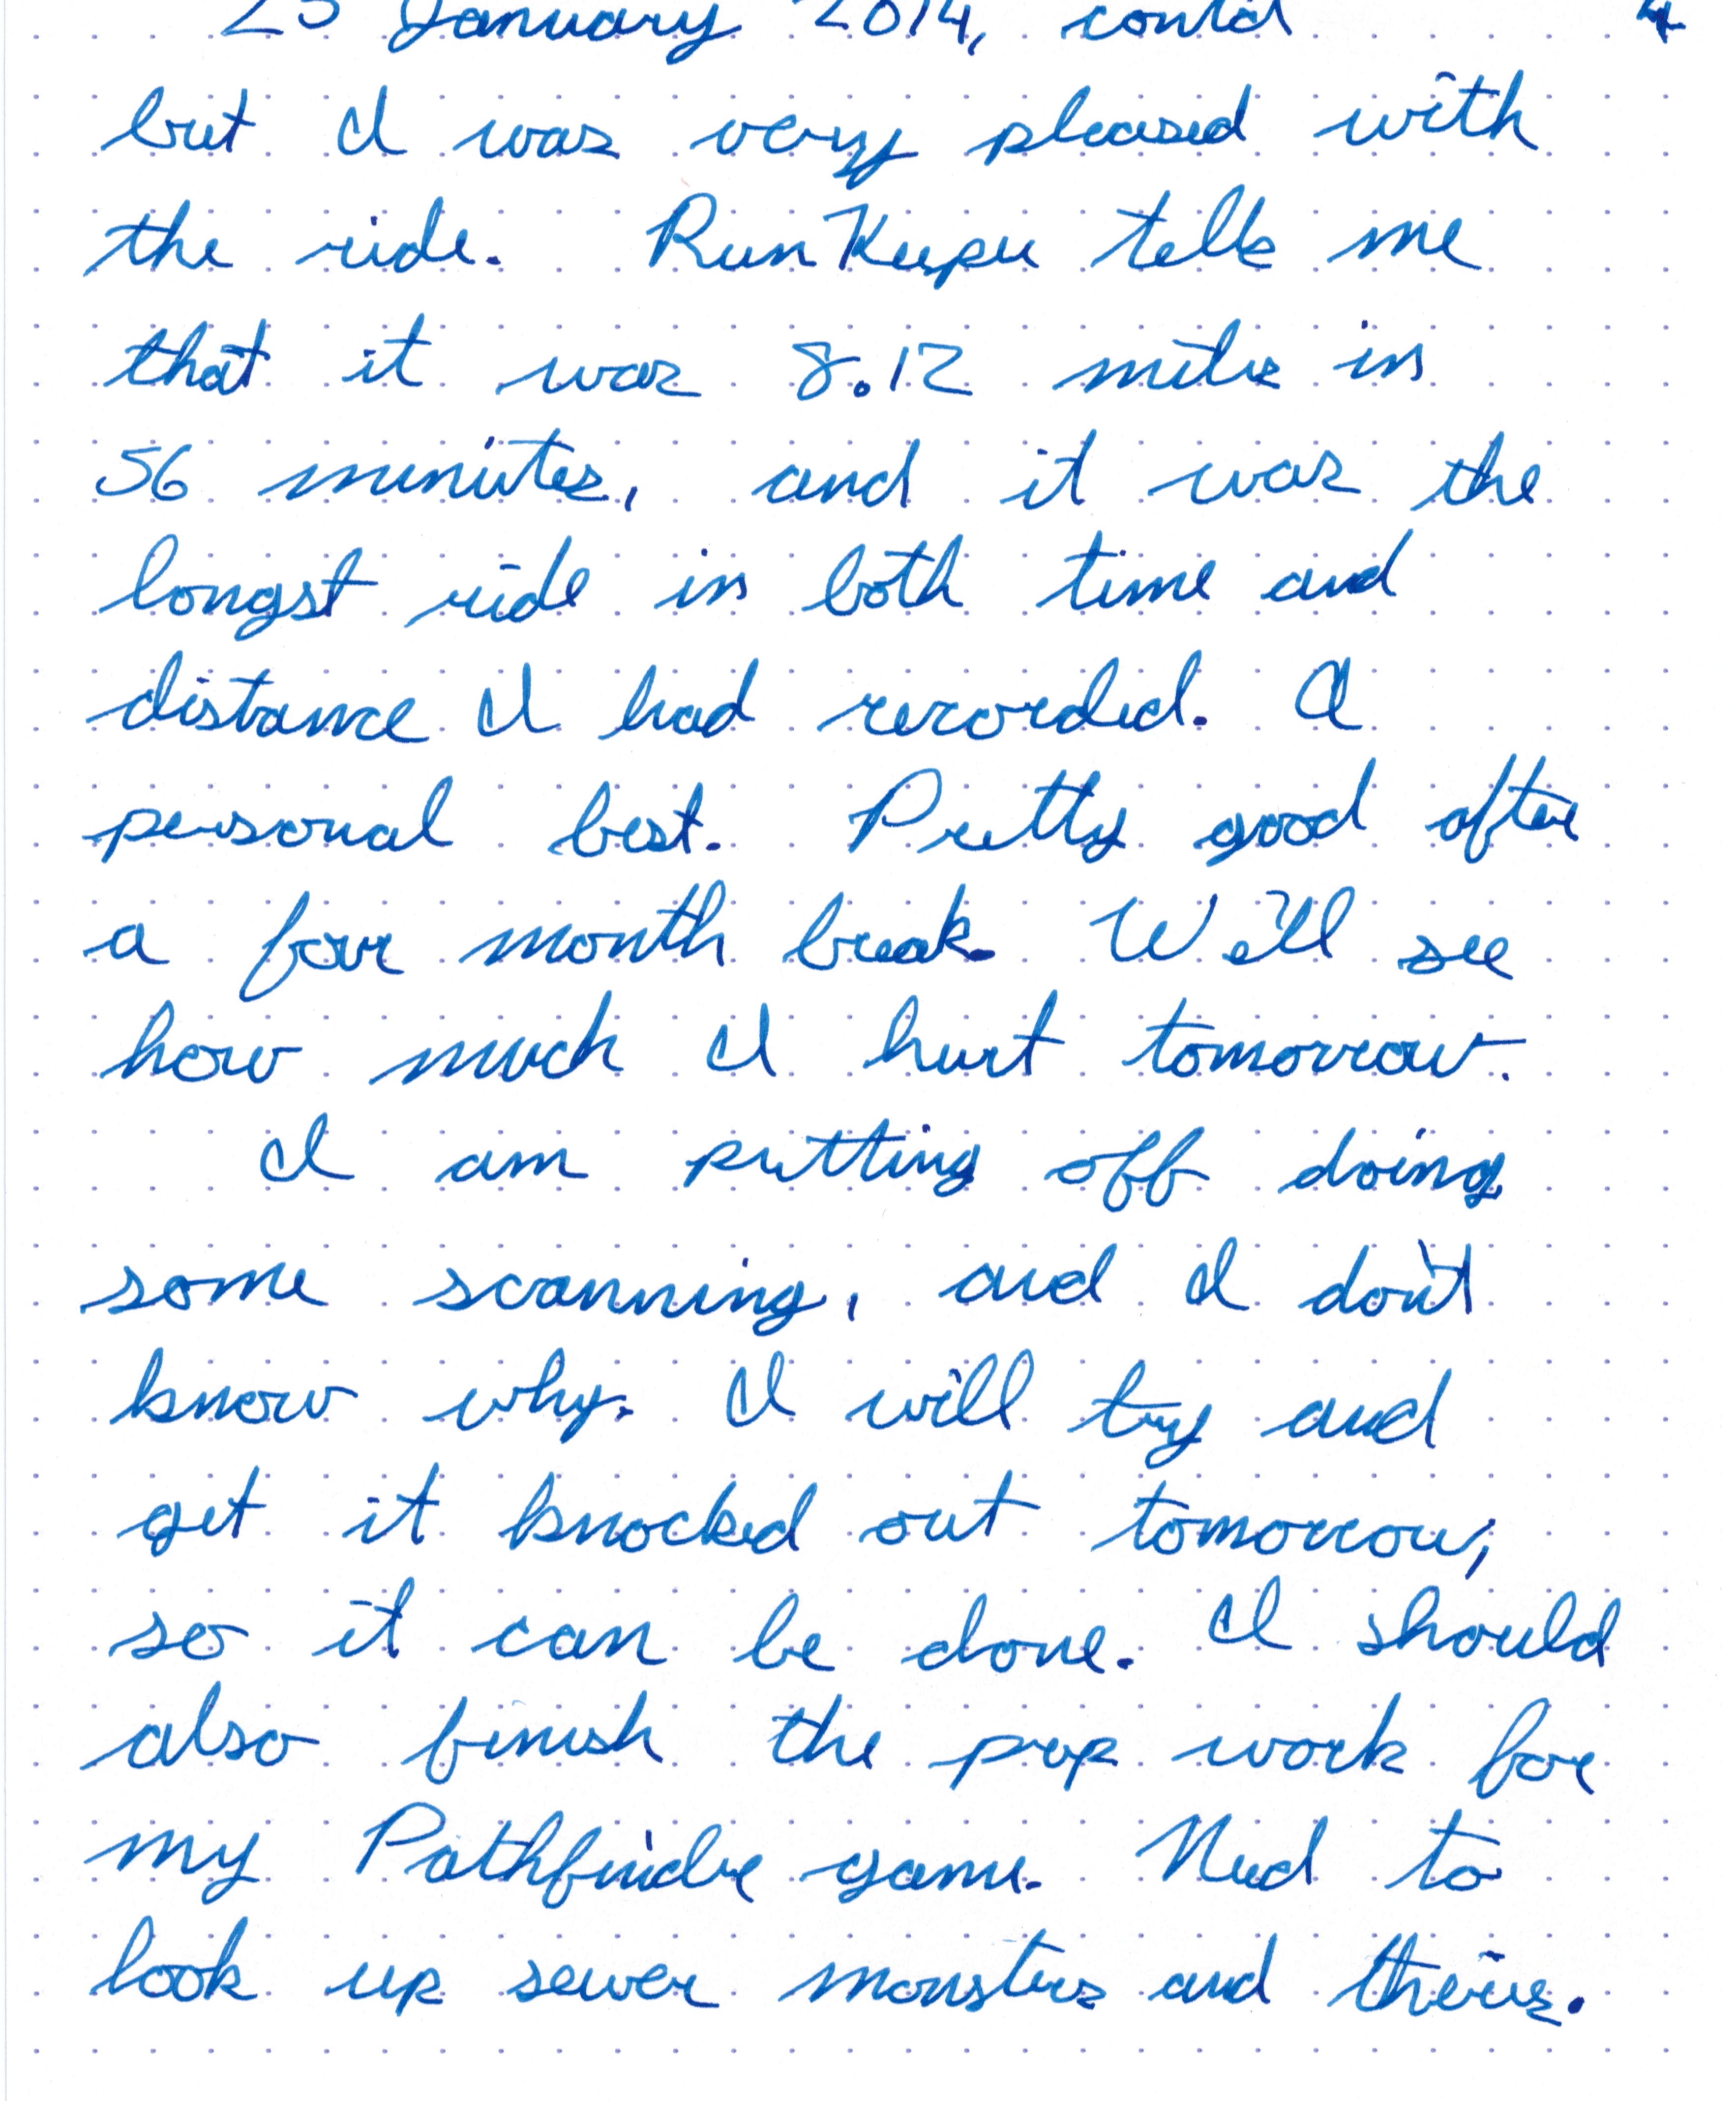 25 January 2014, contd 4
but I was very pleased with
the ride. RunKeeper tells me
that it was 8.12 miles in
56 minutes, and it was the
longst ride in both time and
distance I had recorded. A
personal best. Pretty good after
a four month break. We'll see
how much I hurt tomorrow.
I am putting off doing
some scanning, and I don't
know why. I will try and
get it knocked out tomorrow,
so it can be done. I should
also finish the prep work for
my Pathfinder game. Need to
look up sewer monsters and theives.